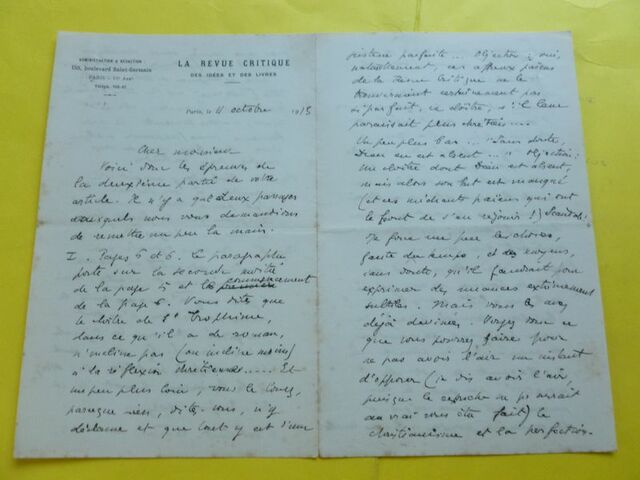 ADMINISTRATION & RÉDACTION
155, boulevard Saint-Germain
PARIS - VIe Arrt
LA REVUE CRITIQUE
DES IDÉES ET DES LIVRES
Paris, le 11 octobre 1913
Cher monsieur
Voici donc les épreuves de
la deuxième partie de votre
article. Il n'y a que deux passages
auxquels nous vous demandions
de remettre un peu la main.
I. Pages 5 et 6. Le paragraphe
porte sur la seconde moitié
de la page 5 et le commencement
de la page 6. Vous dites que
le cloître de St Trophime,
dans ce qu'il a de roman,
n'incline pas (ou incline moins)
à la réflexion chrétienne..... Et
un peu plus loin, vous le louez,
parce que rien, dites-vous, n'y
déclame et que tout y est d'une
justesse parfaite... Objection: oui,
naturellement, ces affreux païens
de la Revue Critique ne le
trouveraient certainement pas
si parfait, ce cloître, s'il leur
paraissait plus chrétien...
Un peu plus bas... Sans doute,
Dieu en est absent... Objection:
Un cloître dont Dieu est absent,
mais alors son but est manqué
(et ces méchants païens qui ont
le front de s'en réjouir!) Scandale!
Je force un peu les choses,
faute de temps, et de moyens,
sans doute, qu'il faudrait pour
exprimer des nuances extrêmement
subtiles. Mais vous les avez
déjà devinées. Voyez donc ce
que vous pourrez faire pour
ne pas avoir l'air un instant
d'opposer (je dis avoir l'air,
puisque le reproche ne pourrait
au vrai vous être fait) le
christianisme et la perfection.